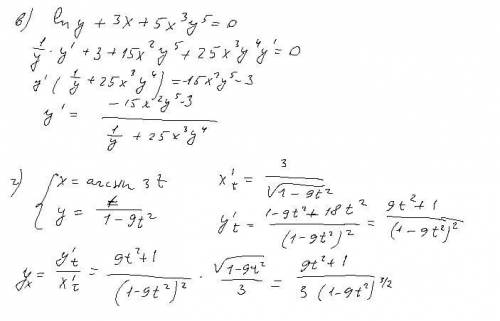 в) ln y + 3x + 5x³y⁵ = 0
1/y · y' + 3 + 15x²y⁵ + 25x³y⁴y' = 0
y' (1/y + 25x³y⁴) = -15x²y⁵ - 3
y' = (-15x²y⁵ - 3) / (1/y + 25x³y⁴)
г) { x = arcsin 3t x't = 3/√(1-9t²)
y = t/(1-9t²) y't = (1-9t²+18t²)/(1-9t²)² = (9t²+1)/(1-9t²)²
yx = y't/x't = (9t²+1)/(1-9t²)² · √(1-9t²)/3 = (9t²+1)/(3(1-9t²)^(3/2))